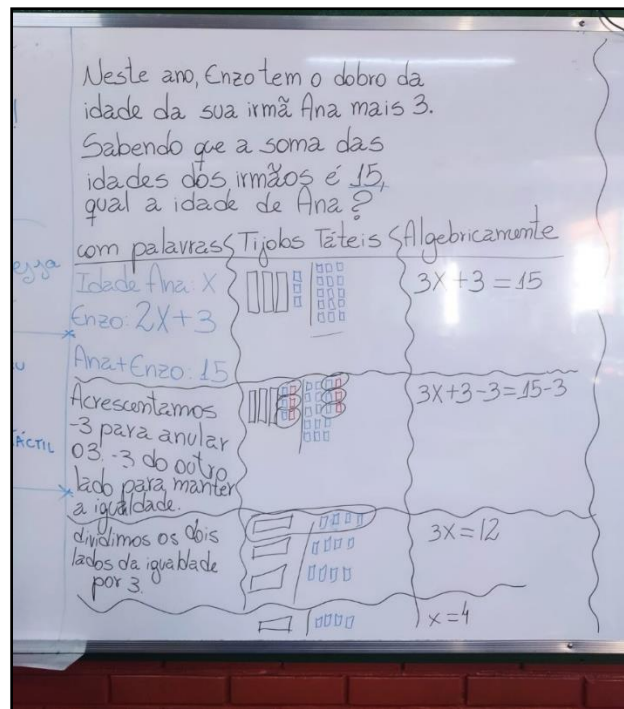 Neste ano, Enzo tem o dobro da
idade da sua irmã Ana mais 3.
Sabendo que a soma das
idades dos irmãos é 15,
qual a idade de Ana?
com palavras Tijolos Táteis Algebricamente
Idade Ana: X
Enzo: 2X+3
Ana+Enzo: 15
3X+3=15
Acrescentamos
-3 para anular
o 3. -3 do outro
lado para manter
a igualdade.
3X+3-3=15-3
dividimos os dois
lados da igualdade
por 3.
3X=12
x=4